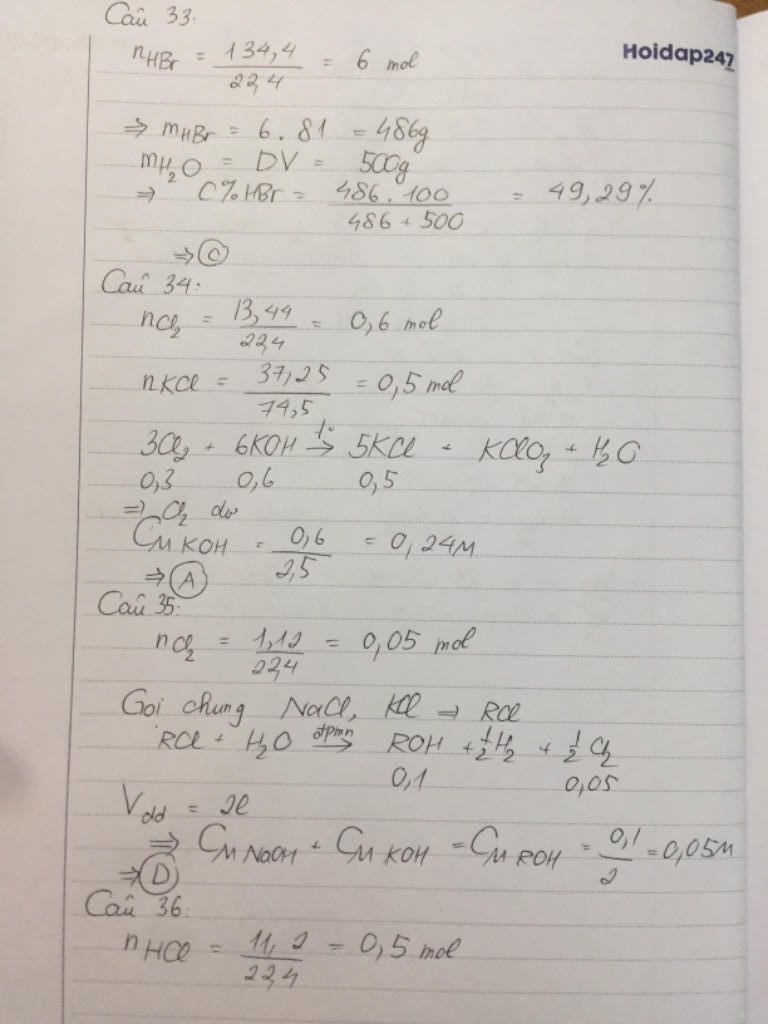 Câu 33:
Hoidap247
nHBr = 134,4 / 22,4 = 6 mol
⇒ mHBr = 6 . 81 = 486g
mH2O = DV = 500g
⇒ C% HBr = 486 . 100 / 486 + 500 = 49,29%
⇒ C
Câu 34:
nCl2 = 13,44 / 22,4 = 0,6 mol
nKCl = 37,25 / 74,5 = 0,5 mol
3Cl2 + 6KOH t°→ 5KCl + KClO3 + H2O
0,3 0,6 0,5
⇒ Cl2 dư
CM KOH = 0,6 / 2,5 = 0,24M
⇒ A
Câu 35:
nCl2 = 1,12 / 22,4 = 0,05 mol
Gọi chung NaCl, KCl ⇒ RCl
RCl + H2O đpmn→ ROH + 1/2 H2 + 1/2 Cl2
0,1 0,05
Vdd = 2l
⇒ CM NaOH + CM KOH = CM ROH = 0,1 / 2 = 0,05M
⇒ D
Câu 36:
nHCl = 11,2 / 22,4 = 0,5 mol